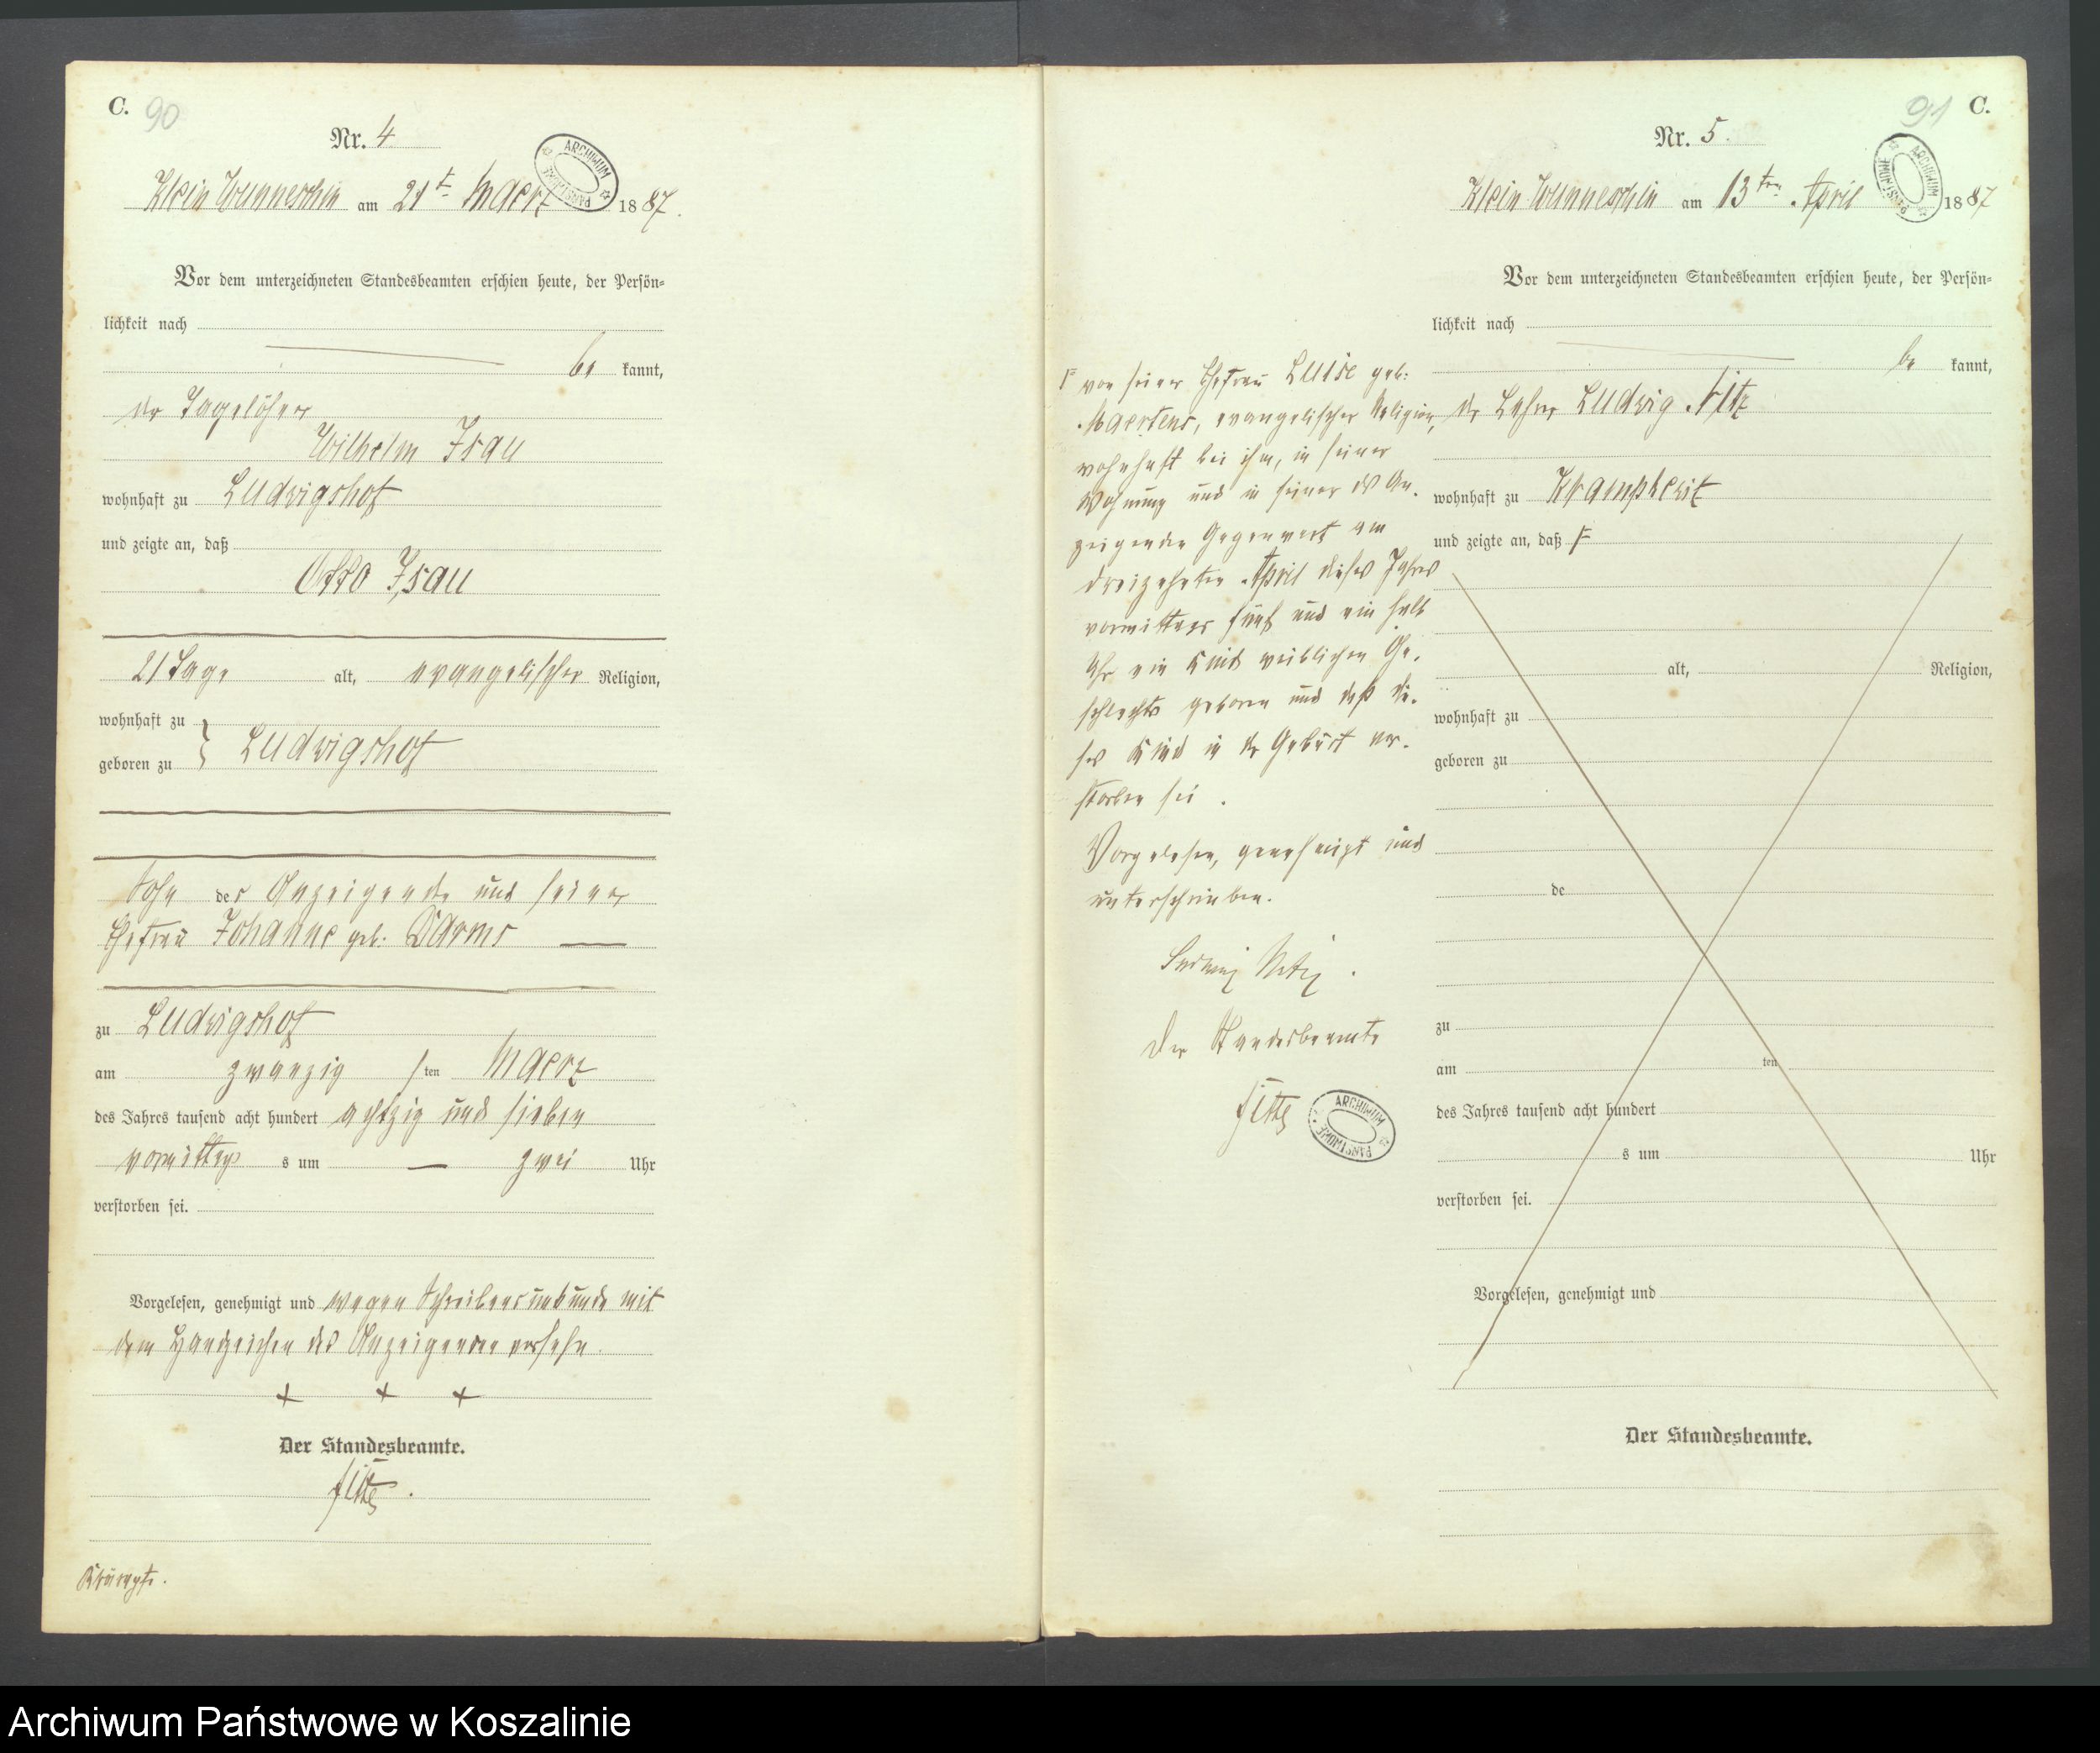 C. 90
Nr. 4
Klein Wunneschin am 21t. Maerz 1887.
ARCHIWUM PAŃSTWOWE
Vor dem unterzeichneten Standesbeamten erschien heute, der Persön-
lichkeit nach
be kannt,
der Tagelöhner
Wilhelm Isau
wohnhaft zu Ludwigshof
und zeigte an, daß
Otto Isau
21 Tage alt, evangelischer Religion,
wohnhaft zu
geboren zu } Ludwigshof
Sohn des Anzeigende und seiner
Ehefrau Johanne geb.
zu Ludwigshof
am zwanzig sten Maerz
des Jahres tausend acht hundert achtzig und sieben
vormittags um zwei Uhr
verstorben sei.
Vorgelesen, genehmigt und wegen Schreibensunkunde mit
dem Handzeichen des Anzeigenden versehn.
+ + +
Der Standesbeamte.
Krämpfe.
91 C.
Nr. 5.
Klein Wunneschin am 13ten April 1887
ARCHIWUM PAŃSTWOWE
Vor dem unterzeichneten Standesbeamten erschien heute, der Persön-
lichkeit nach
be kannt,
der Lehrer Ludwig
wohnhaft zu Krampkewitz
und zeigte an, daß F
alt, Religion,
wohnhaft zu
geboren zu
de
zu
am ten
des Jahres tausend acht hundert
s um Uhr
verstorben sei.
Vorgelesen, genehmigt und
Der Standesbeamte.
F von seiner Ehefrau Luise geb:
Maertens, evangelischer Religion,
wohnhaft bei ihm, in seiner
Wohnung und in seiner des An-
zeigenden Gegenwart am
dreizehnten April dieses Jahres
vormittags fünf und ein halb
Uhr ein Kind weiblichen Ge-
schlechts geboren und daß die-
ses Kind in der Geburt ver-
storben sei.
Vorgelesen, genehmigt und
unterschrieben.
Ludwig
Der Standesbeamte
ARCHIWUM PAŃSTWOWE
Archiwum Państwowe w Koszalinie